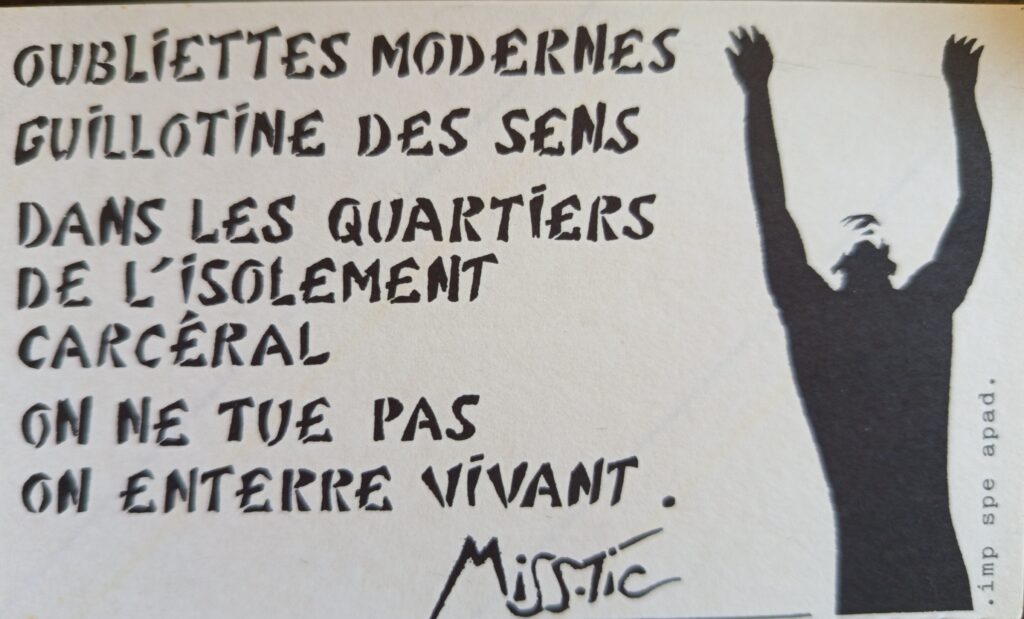 OUBLiETTES MODERNES
GUiLLOTiNE DES SENS
DANS LES QUARTiERS
DE L'iSOLEMENT
CARCÉRAL
ON NE TUE PAS
ON ENTERRE ViVANT.
MiSS.TiC
.imp spe apad.